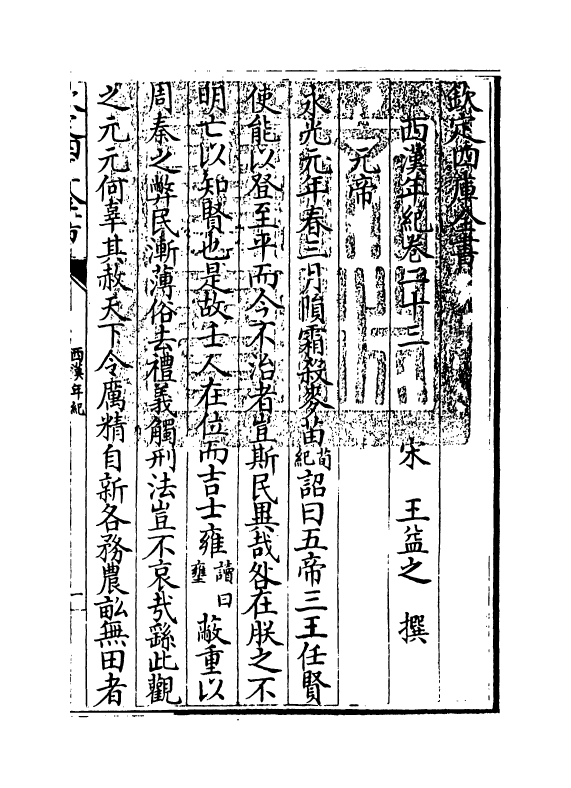 欽定四庫全書
西漢年紀卷二十三 宋 王益之 撰
元帝
永光元年春三月隕霜殺麥苗荀紀詔曰五帝三王任賢
使能以登至平而今不治者豈斯民異哉咎在朕之不
明亡以知賢也是故壬人在位而吉士雍讀曰壅蔽重以
周秦之弊民漸薄俗去禮義觸刑法豈不哀哉繇此觀
之元元何辜其赦天下令厲精自新各務農畝無田者
西漢年紀
一